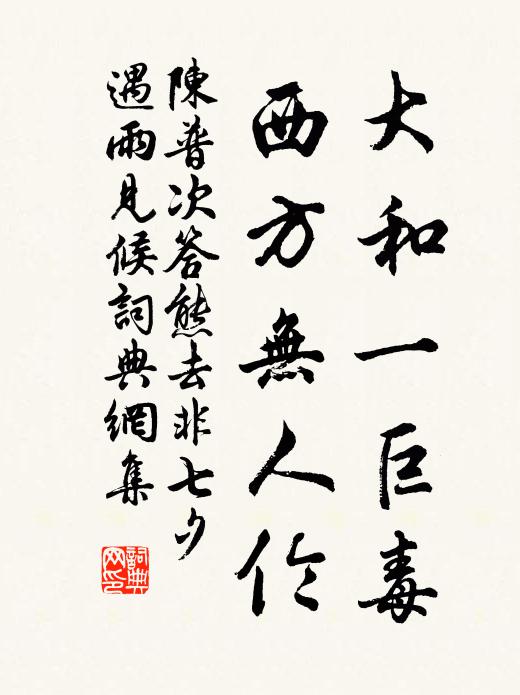 大和一巨毒
西方無人伶
陳普次答熊去非七夕
遇雨見候詞典網集
詞典
网印